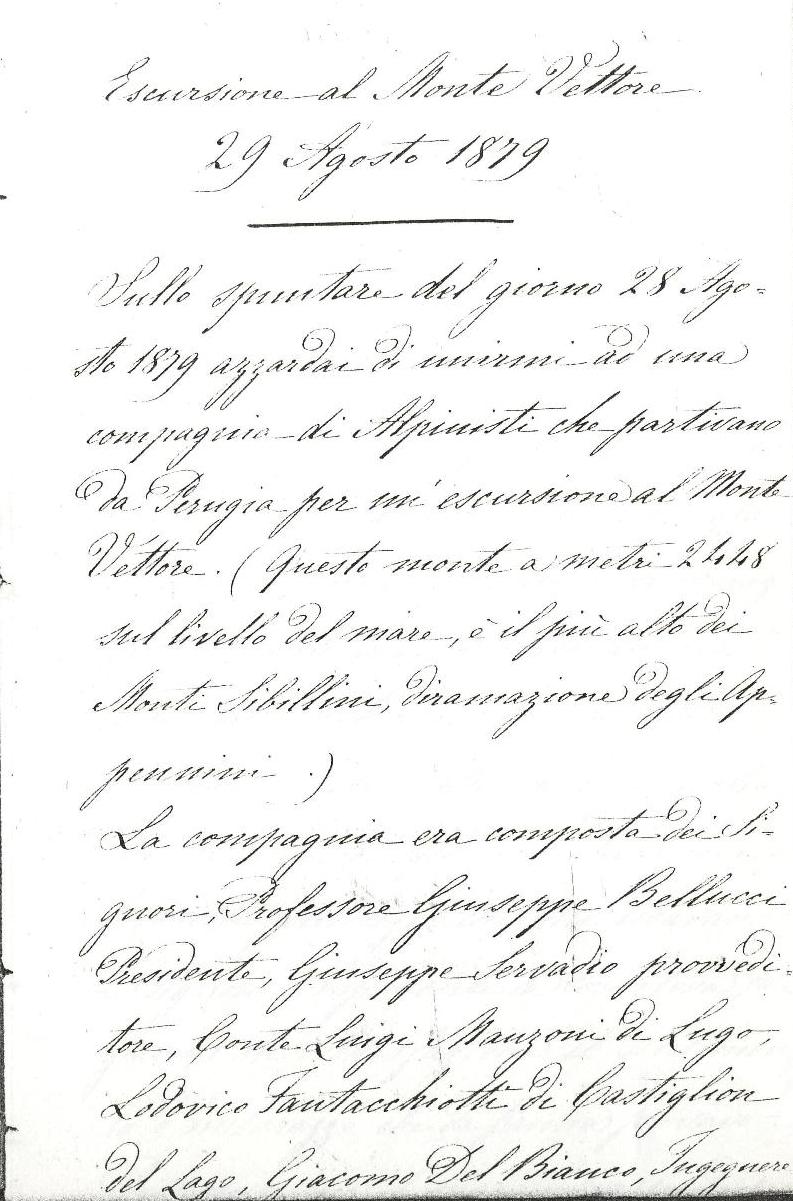 Escursione al Monte Vettore
29 Agosto 1879
Sullo spuntare del giorno 28 Ago=
sto 1879 azzardai di unirmi ad una
compagnia di Alpinisti che partivano
da Perugia per un' escursione al Monte
Vettore. (Questo monte a metri 2448
sul livello del mare, è il più alto dei
Monti Sibillini, diramazione degli Ap=
pennini.)
La compagnia era composta dei Si=
gnori, Professore Giuseppe Bellucci
Presidente, Giuseppe Servadio provvedi=
tore, Conte Luigi Manzoni di Lugo,
Lodovico Fantacchiotti di Castiglion
del Lago, Giacomo Del Bianco, Ingegnere